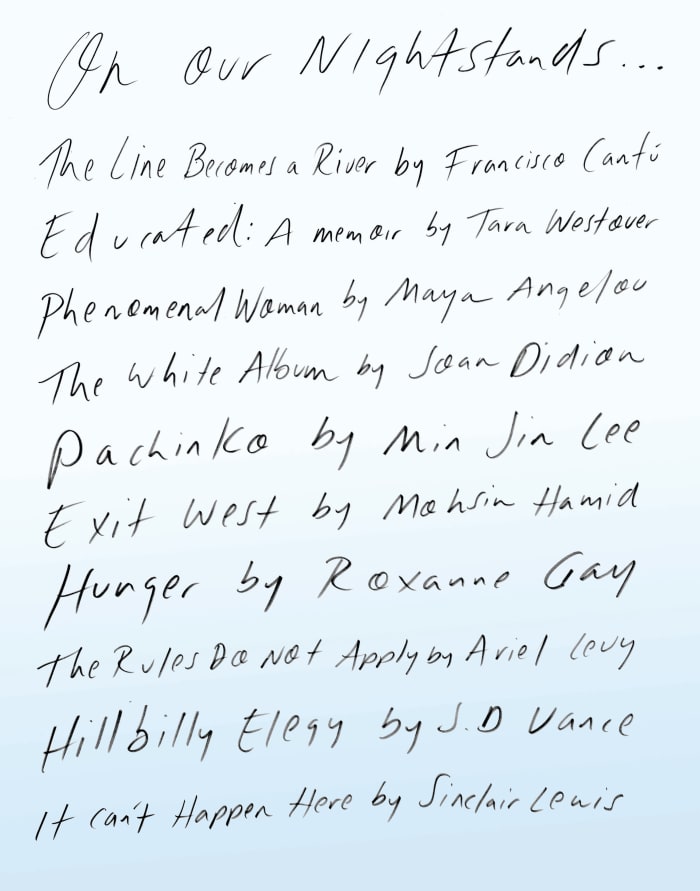 On our Nightstands...
The Line Becomes a River by Francisco Cantú
Educated: A memoir by Tara Westover
Phenomenal Woman by Maya Angelou
The White Album by Joan Didion
Pachinko by Min Jin Lee
Exit West by Mohsin Hamid
Hunger by Roxanne Gay
The Rules Do Not Apply by Ariel Levy
Hillbilly Elegy by J.D Vance
It Can't Happen Here by Sinclair Lewis